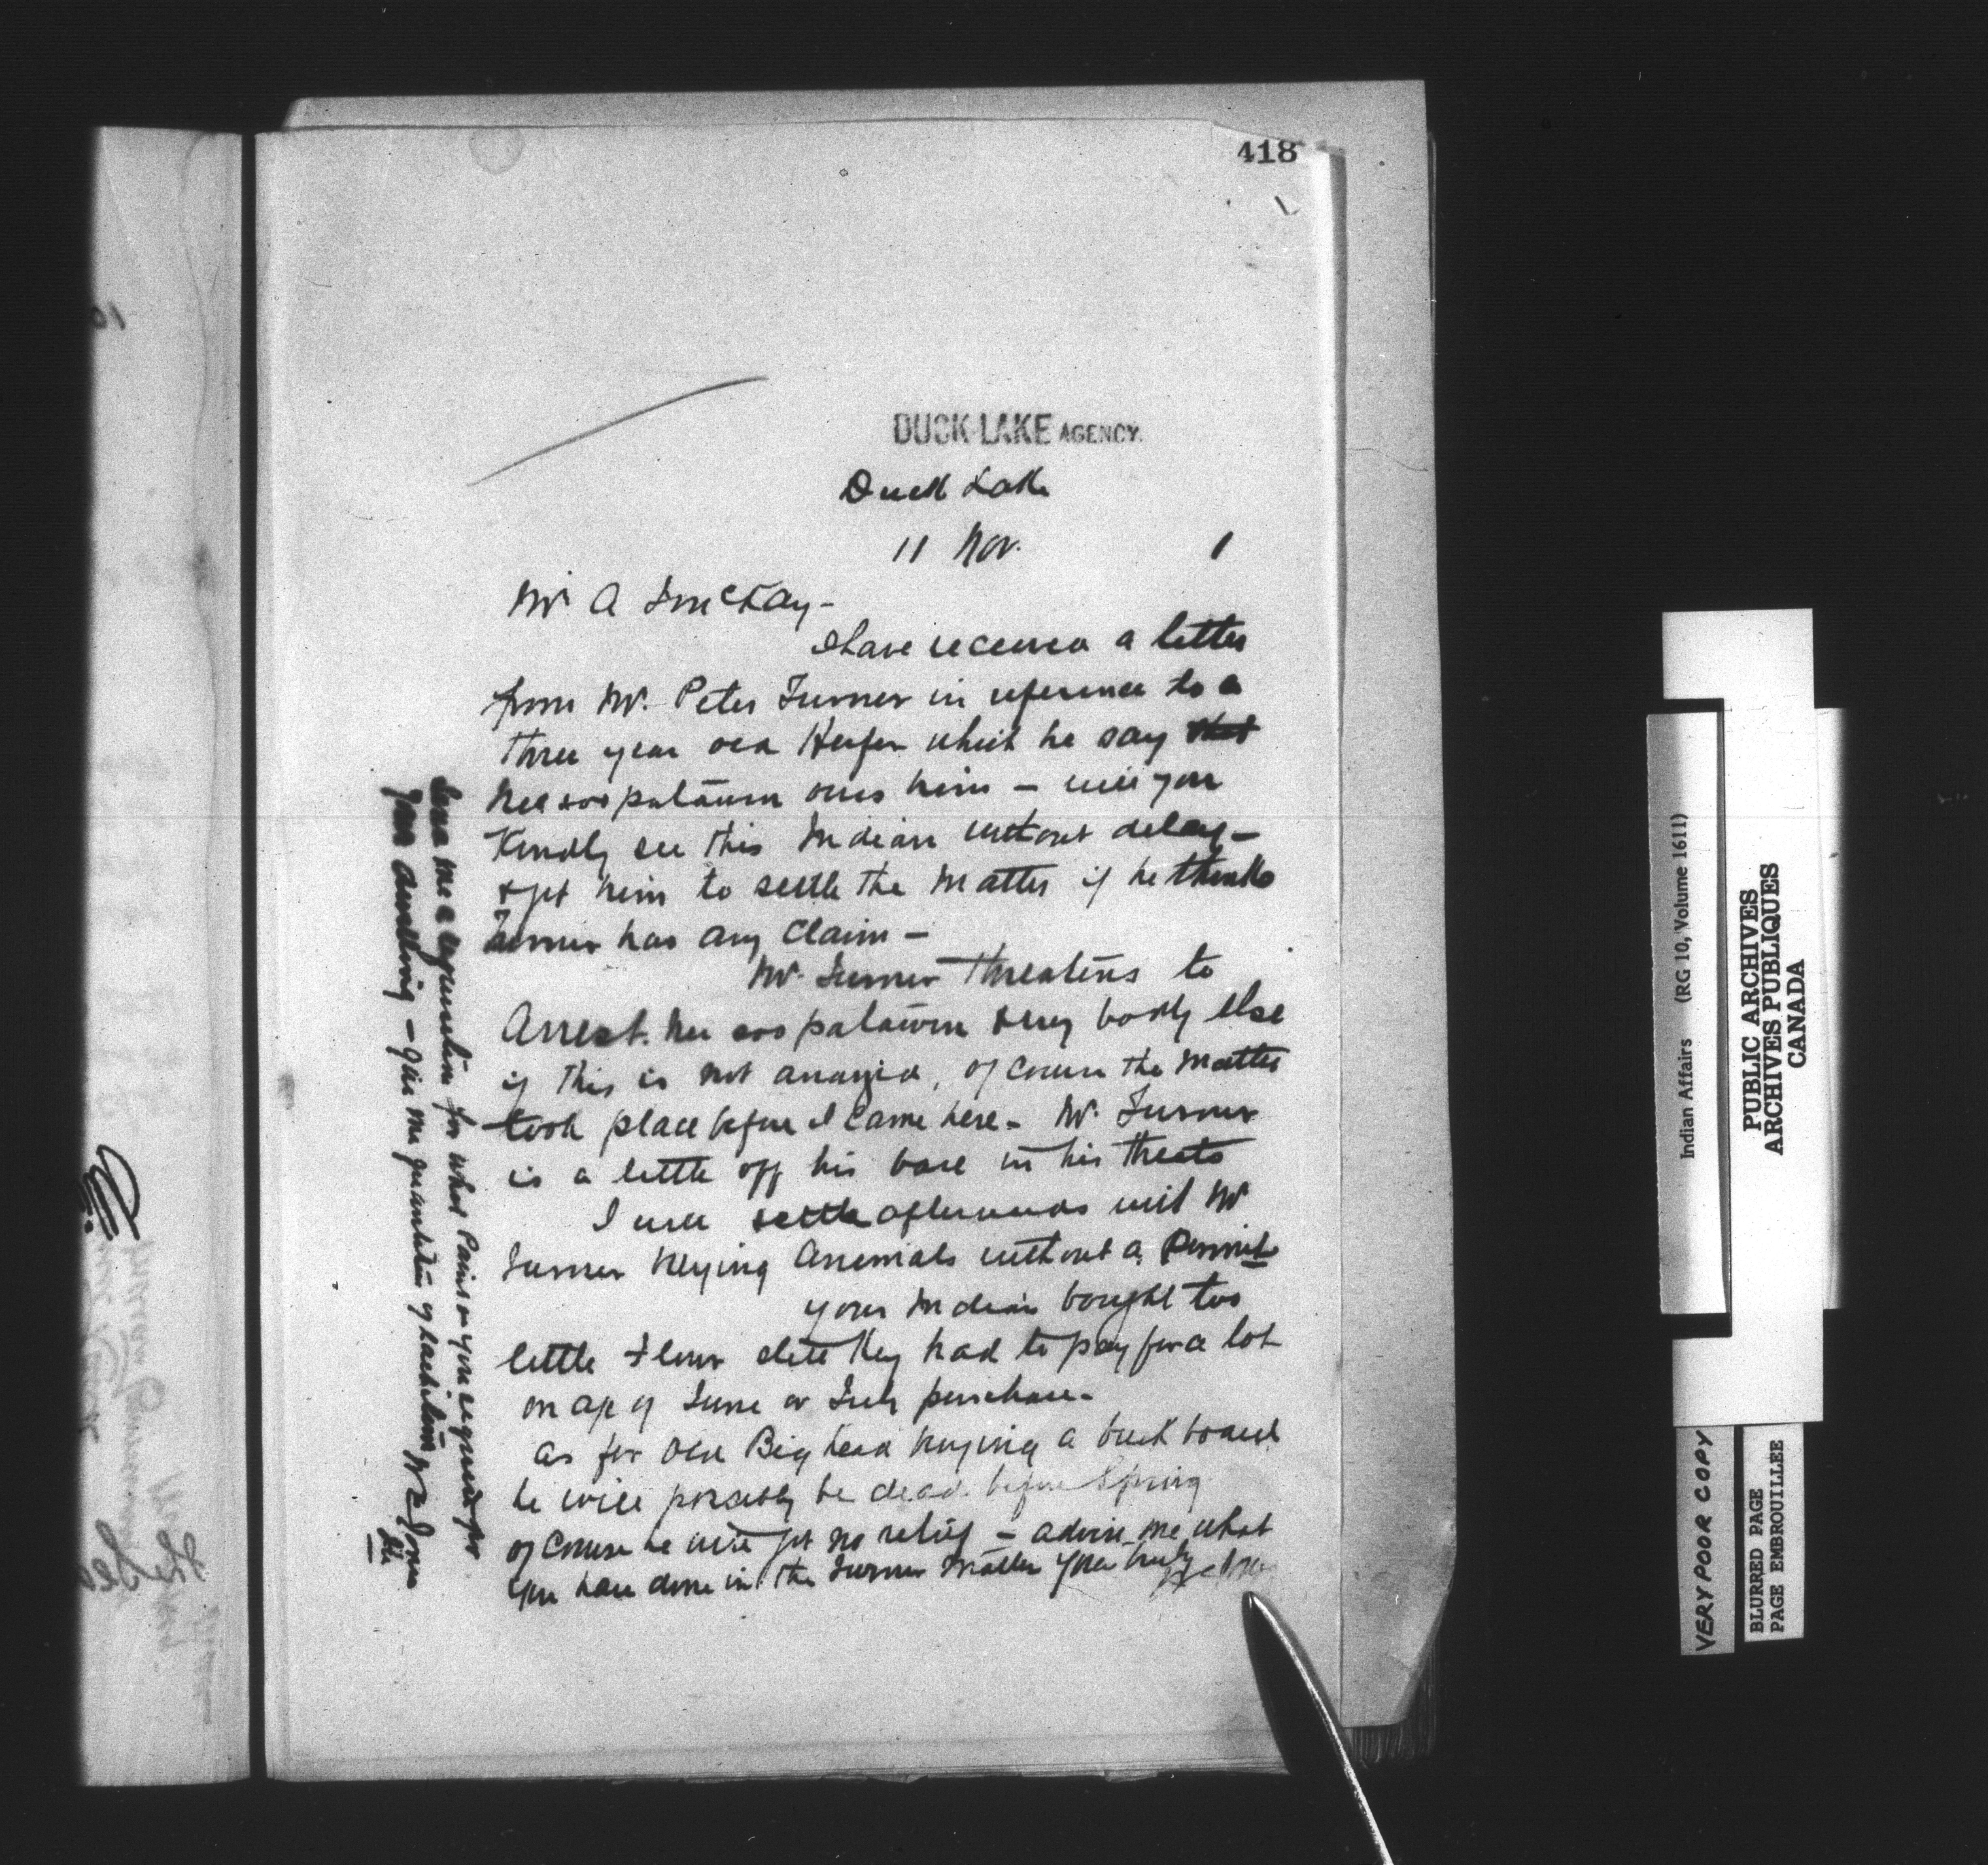 418
DUCK LAKE AGENCY.
Duck Lake
11 Nov. 1
Mr A J McKay -
I have received a letter
from Mr. Peter Turner in reference to a
three year old Heifer which he say that
owes him - will you
Kindly see this Indian without delay -
& get him to settle the Matter if he thinks
Turner has any Claim -
Mr. Turner threatens to
Arrest. & every body else
if this is not arranged, of course the Matter
took place before I came here - Mr. Turner
is a little off his base in his threats
I will settle afterwards with Mr
Turner buying Animals without a Permit
your Indians bought too
little Flour else they had to pay for a lot
on a/c of June or July purchase -
as for Old Big head buying a buck board
he will possibly be dead before Spring
of course he will get no relief - advise me what
you have done in the Turner Matter Yours truly
Send me a requisition for what Paint you require for
your dwelling - give me quantities of each item W E Jones
Indian Affairs (RG 10, Volume 1611)
PUBLIC ARCHIVES
ARCHIVES PUBLIQUES
CANADA
VERY POOR COPY
BLURRED PAGE
PAGE EMBROUILLEE